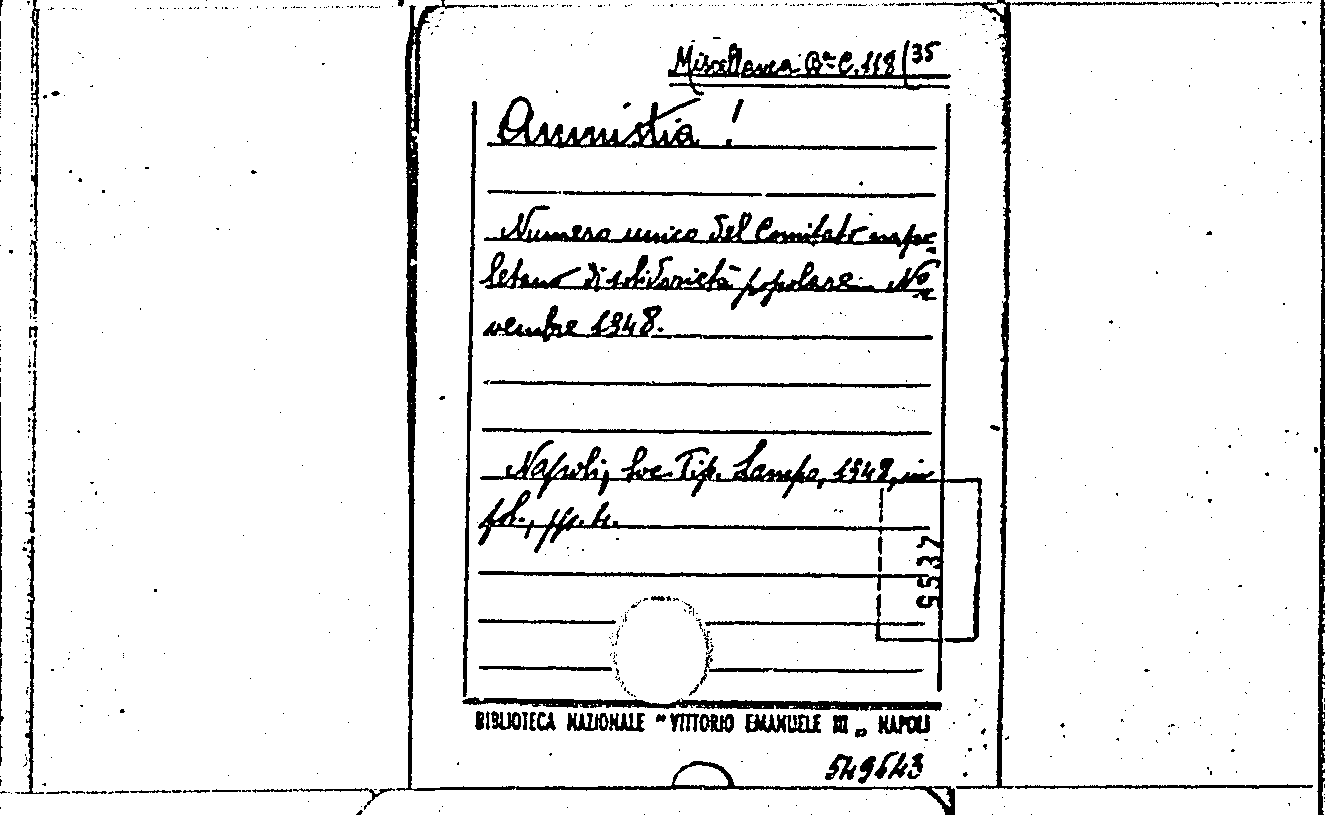 Miscellanea Bª C. 118/35
Amnistia!
Numero unico del Comitato napo-
letano di solidarietà popolare. No-
vembre 1948.
Napoli, Soc. Tip. Lampo, 1948, in
fol., pp. 4.
9537
BIBLIOTECA NAZIONALE "VITTORIO EMANUELE III„ NAPOLI
549643